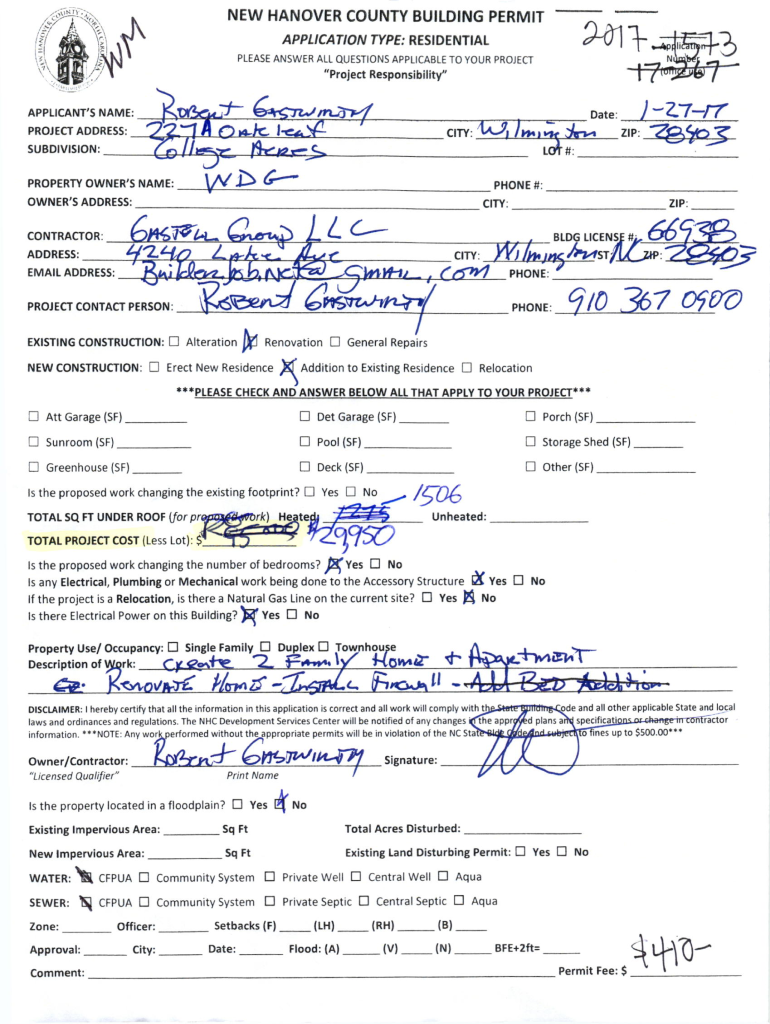 NEW HANOVER COUNTY • NORTH CAROLINA
WM
NEW HANOVER COUNTY BUILDING PERMIT
APPLICATION TYPE: RESIDENTIAL
PLEASE ANSWER ALL QUESTIONS APPLICABLE TO YOUR PROJECT
"Project Responsibility"
2017-1573
Application
Number
(office use)
17-267
APPLICANT'S NAME: Robert Gastwirth Date: 1-27-17
PROJECT ADDRESS: 227A Oak leaf CITY: Wilmington ZIP: 28403
SUBDIVISION: College Acres LOT #:
PROPERTY OWNER'S NAME: WDG PHONE #:
OWNER'S ADDRESS: CITY: ZIP:
CONTRACTOR: Group LLC BLDG LICENSE #: 66938
ADDRESS: 4240 Lake Ave CITY: Wilmington ST: NC ZIP: 28403
EMAIL ADDRESS: gmail.com PHONE:
PROJECT CONTACT PERSON: Robert Gastwirth PHONE: 910 367 0900
EXISTING CONSTRUCTION: ☐ Alteration ☒ Renovation ☐ General Repairs
NEW CONSTRUCTION: ☐ Erect New Residence ☒ Addition to Existing Residence ☐ Relocation
***PLEASE CHECK AND ANSWER BELOW ALL THAT APPLY TO YOUR PROJECT***
☐ Att Garage (SF) ☐ Det Garage (SF) ☐ Porch (SF)
☐ Sunroom (SF) ☐ Pool (SF) ☐ Storage Shed (SF)
☐ Greenhouse (SF) ☐ Deck (SF) ☐ Other (SF)
Is the proposed work changing the existing footprint? ☐ Yes ☐ No
1506
TOTAL SQ FT UNDER ROOF (for proposed work) Heated: Unheated:
TOTAL PROJECT COST (Less Lot): $ $29,950
Is the proposed work changing the number of bedrooms? ☒ Yes ☐ No
Is any Electrical, Plumbing or Mechanical work being done to the Accessory Structure ☒ Yes ☐ No
If the project is a Relocation, is there a Natural Gas Line on the current site? ☐ Yes ☒ No
Is there Electrical Power on this Building? ☒ Yes ☐ No
Property Use/ Occupancy: ☐ Single Family ☐ Duplex ☐ Townhouse
Description of Work: Create 2 Family Home + Apartment
Renovate Home - Install Firewall - Add Bed Addition
DISCLAIMER: I hereby certify that all the information in this application is correct and all work will comply with the State Building Code and all other applicable State and local
laws and ordinances and regulations. The NHC Development Services Center will be notified of any changes in the approved plans and specifications or change in contractor
information. ***NOTE: Any work performed without the appropriate permits will be in violation of the NC State Bldg Code and subject to fines up to $500.00***
Owner/Contractor: Robert Gastwirth Signature:
"Licensed Qualifier" Print Name
Is the property located in a floodplain? ☐ Yes ☒ No
Existing Impervious Area: Sq Ft Total Acres Disturbed:
New Impervious Area: Sq Ft Existing Land Disturbing Permit: ☐ Yes ☐ No
WATER: ☒ CFPUA ☐ Community System ☐ Private Well ☐ Central Well ☐ Aqua
SEWER: ☒ CFPUA ☐ Community System ☐ Private Septic ☐ Central Septic ☐ Aqua
Zone: Officer: Setbacks (F) (LH) (RH) (B)
Approval: City: Date: Flood: (A) (V) (N) BFE+2ft=
Comment: Permit Fee: $ $410-